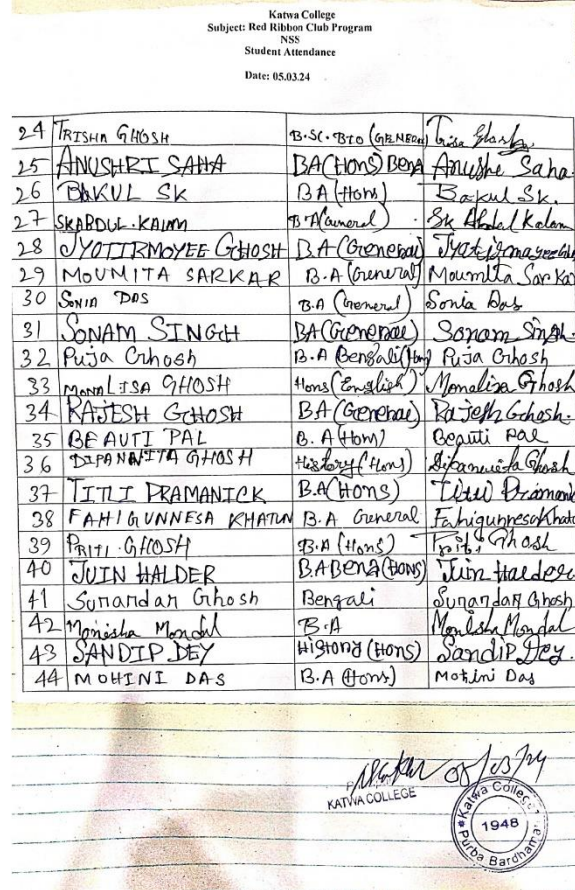 Katwa College
Subject: Red Ribbon Club Program
NSS
Student Attendance
Date: 05.03.24
24 TRISHA GHOSH B.SC. BIO (GENERAL) Trisa Ghosh
25 ANUSHRI SAHA BA(HONS) BENG Anushe Saha
26 BAKUL SK BA (Hons) Bakul Sk.
27 SK ABDUL. KALAM B.A(General) Sk Abdul Kalam
28 JYOTIRMOYEE GHOSH B.A (General) Jyotirmoyee Gho
29 MOUMITA SARKAR B.A (General) Moumita Sarkar
30 SONIA DAS B.A (General) Sonia Das
31 SONAM SINGH BA(General) Sonam Singh.
32 Puja Ghosh B.A Bengali (Hons) Puja Ghosh
33 MONALISA GHOSH Hons (English) Monalisa Ghosh
34 RAJESH GHOSH BA (General) Rajesh Ghosh.
35 BEAUTI PAL B.A (Hons) Beauti Pal
36 DIPANWITA GHOSH History (Hons) Dipanwita Ghosh
37 TITLI PRAMANICK B.A (HONS) Titli Pramani
38 FAHIGUNNESA KHATUN B.A General Fahigunnesa Khatu
39 PRITI. GHOSH B.A (Hons) Priti Ghosh
40 JUIN HALDER B.A BENG (HONS) Juin Halder
41 Sunandan Ghosh Bengali Sunandan Ghosh
42 Monisha Mondal B.A Monisha Mondal
43 SANDIP DEY History (Hons) Sandip Dey.
44 MOHINI DAS B.A (Hons) Mohini Das
KATWA COLLEGE
Katwa College
1948
Purba Bardhaman